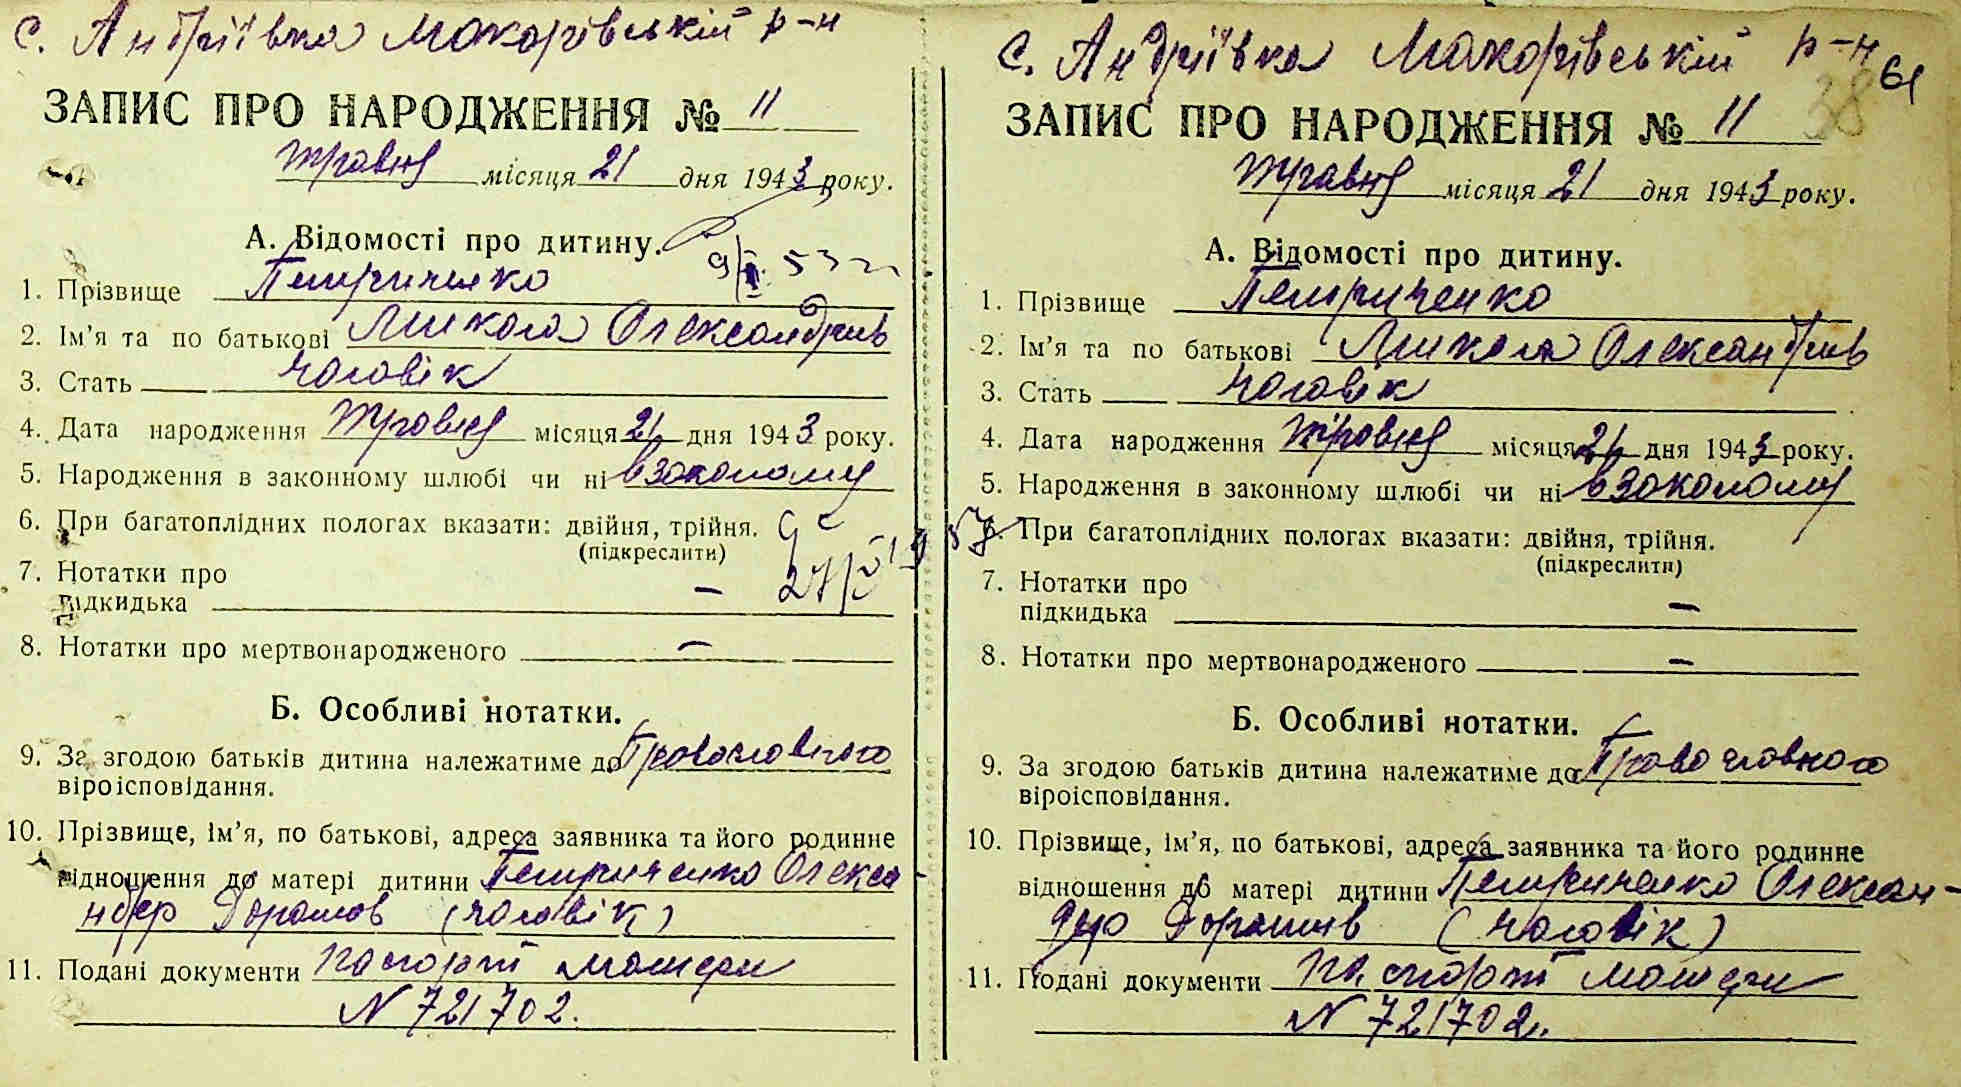 с. Андріївка Макарівській р-н
ЗАПИС ПРО НАРОДЖЕННЯ № 11
травня місяця 21 дня 1943 року.
А. Відомості про дитину.
1. Прізвище Петриченко
2. Ім'я та по батькові Микола Олександрів
3. Стать чоловік
4. Дата народження травня місяця 21 дня 1943 року.
5. Народження в законному шлюбі чи ні в законому
6. При багатоплідних пологах вказати: двійня, трійня.
(підкреслити)
7. Нотатки про
підкидька —
8. Нотатки про мертвонародженого —
Б. Особливі нотатки.
9. За згодою батьків дитина належатиме до Православного
віроісповідання.
10. Прізвище, ім'я, по батькові, адреса заявника та його родинне
відношення до матері дитини Петриченко Олекса-
ндр Дорошов (чоловік)
11. Подані документи паспорт матери
N 721702.
с. Андріївка Макорівській р-н 61
38
ЗАПИС ПРО НАРОДЖЕННЯ № 11
травня місяця 21 дня 1943 року.
А. Відомості про дитину.
1. Прізвище Петриченко
2. Ім'я та по батькові Микола Олександрів
3. Стать чоловік
4. Дата народження травня місяця 21 дня 1943 року.
5. Народження в законному шлюбі чи ні в законому
6. При багатоплідних пологах вказати: двійня, трійня.
(підкреслити)
7. Нотатки про
підкидька —
8. Нотатки про мертвонародженого —
Б. Особливі нотатки.
9. За згодою батьків дитина належатиме до Православного
віроісповідання.
10. Прізвище, ім'я, по батькові, адреса заявника та його родинне
відношення до матері дитини Петриченко Олексан-
др Дорошив (чоловік)
11. Подані документи паспорт матери
N 721702.